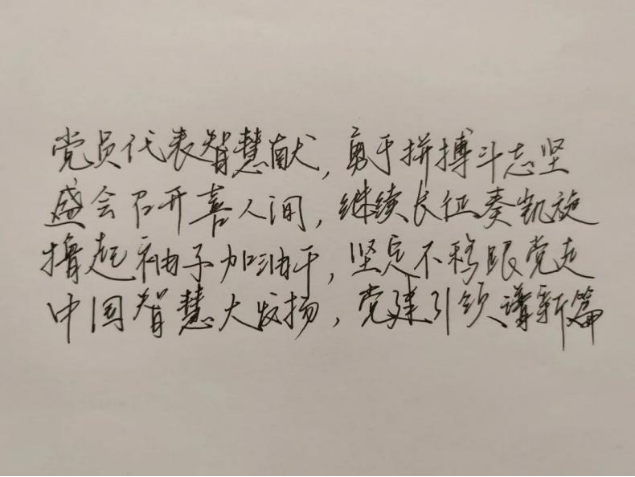 党员代表智慧献，勇于拼搏斗志坚
盛会召开喜人间，继续长征奏凯旋
撸起袖子加油干，坚定不移跟党走
中国智慧大发扬，党建引领谱新篇